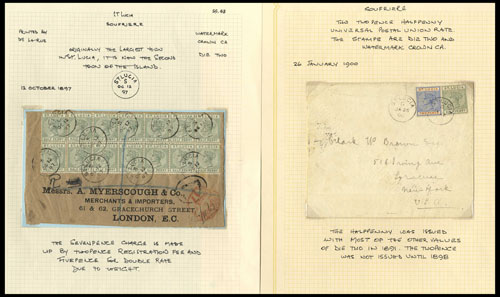 ST LUCIA
SOUFRIERE
PRINTED BY
DE LA RUE
WATERMARK
CROWN CA
DIE TWO
ORIGINALLY THE LARGEST TOWN
IN ST. LUCIA, IT IS NOW THE SECOND
TOWN OF THE ISLAND.
ST LUCIA
S
OC 13
97
13 OCTOBER 1897
Messrs. A. MYERSCOUGH & Co.
MERCHANTS & IMPORTERS,
61 & 62, GRACECHURCH STREET,
LONDON, E.C.
THE SEVENPENCE CHARGE IS MADE
UP BY TWOPENCE REGISTRATION FEE AND
FIVEPENCE FOR DOUBLE RATE
DUE TO WEIGHT.
SOUFRIERE
THE TWOPENCE HALFPENNY
UNIVERSAL POSTAL UNION RATE.
THE STAMPS ARE DIE TWO AND
WATERMARK CROWN CA.
26 JANUARY 1900
Syracuse
New York
U.S.A.
THE HALFPENNY WAS ISSUED
WITH MOST OF THE OTHER VALUES
OF DIE TWO IN 1891. THE TWOPENCE
WAS NOT ISSUED UNTIL 1898